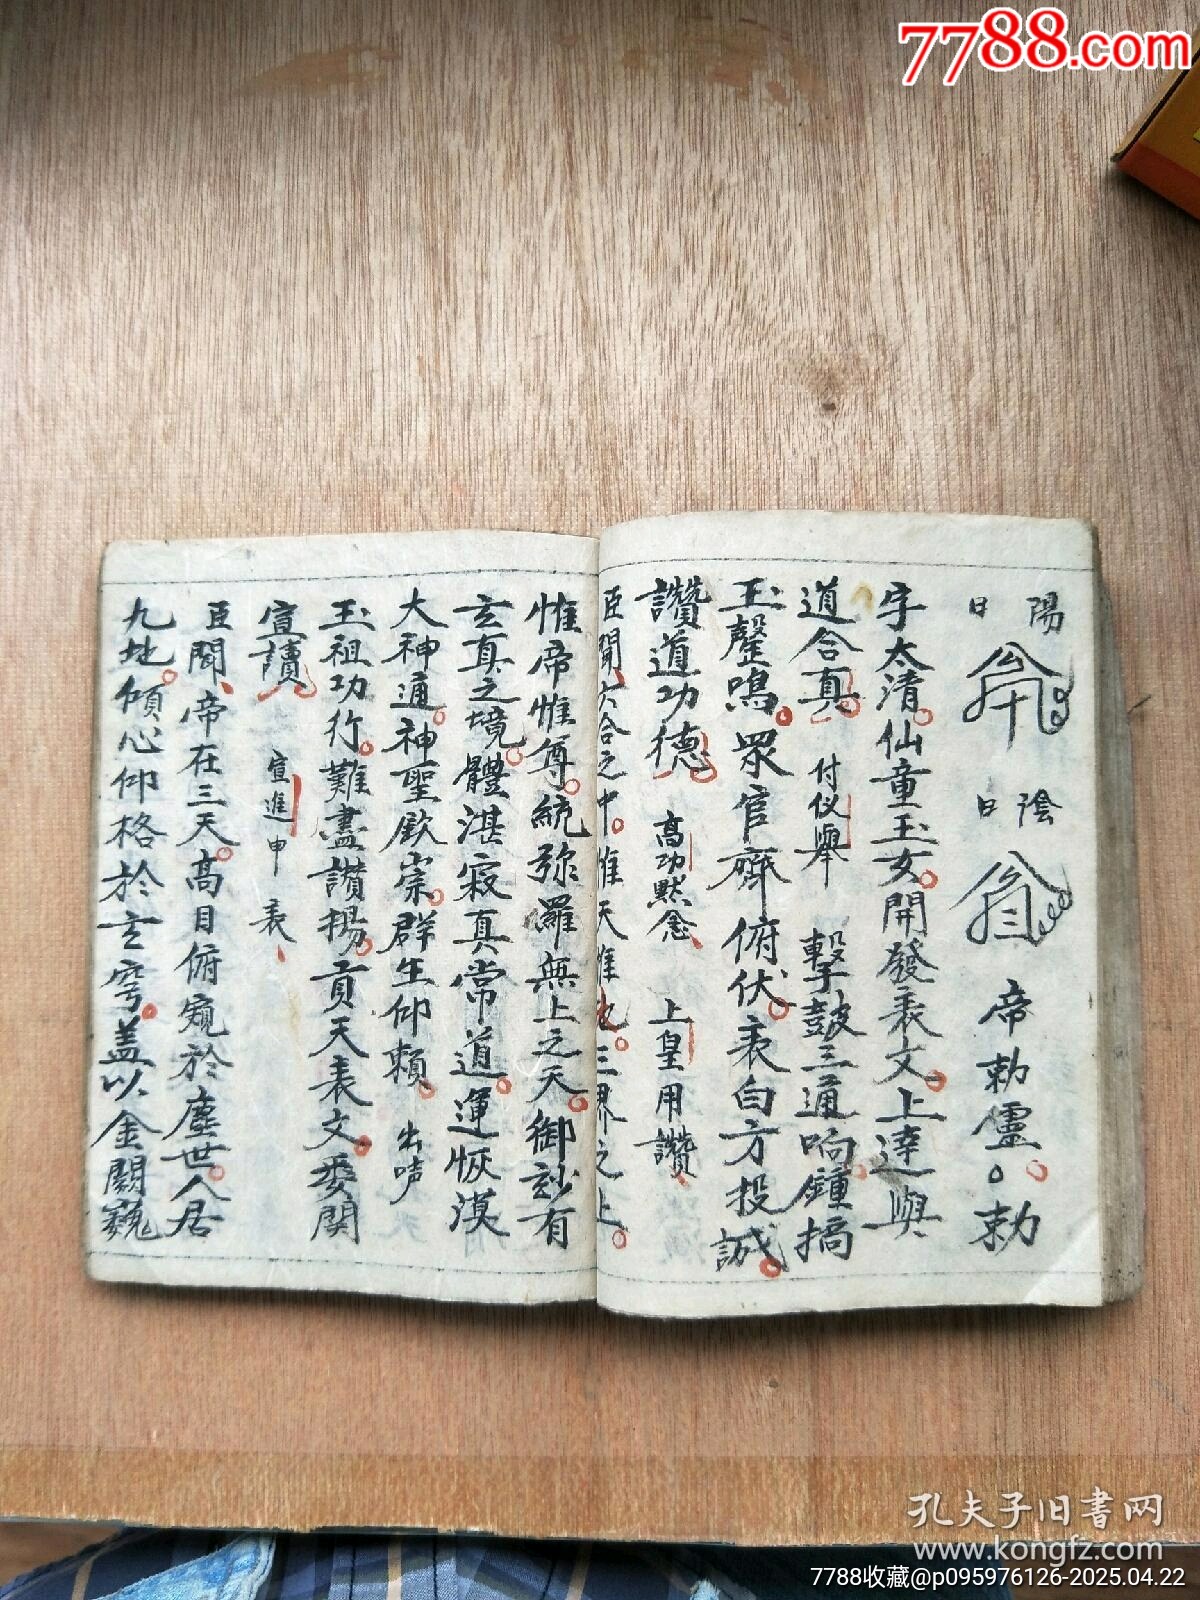 7788.com
陽日
陰日
帝勅靈。勅
字太清。仙童玉女。開發表文。上達與
道合真。付仪舉 擊鼓三通响鐘搞
玉罄鳴。眾官齊俯伏。表白方投誠。
讚道功德 高功默念、上皇用讚、
臣聞、六合之中。惟天惟地。三界之上。
惟帝惟尊。統弥羅無上之天。御玅有
玄真之境。體湛寂真常道。運恢漠
大神通。神聖欽崇。群生仰賴。出唥
玉祖功行。難盡讃揚。貢天表文。爰関
宣讀 宣進申表、
臣聞、帝在三天。高目俯窺於塵世。人居
九地。傾心仰格於玄穹。盖以金闕巍
孔夫子旧书网
www.kongfz.com
7788收藏@p095976126-2025.04.22